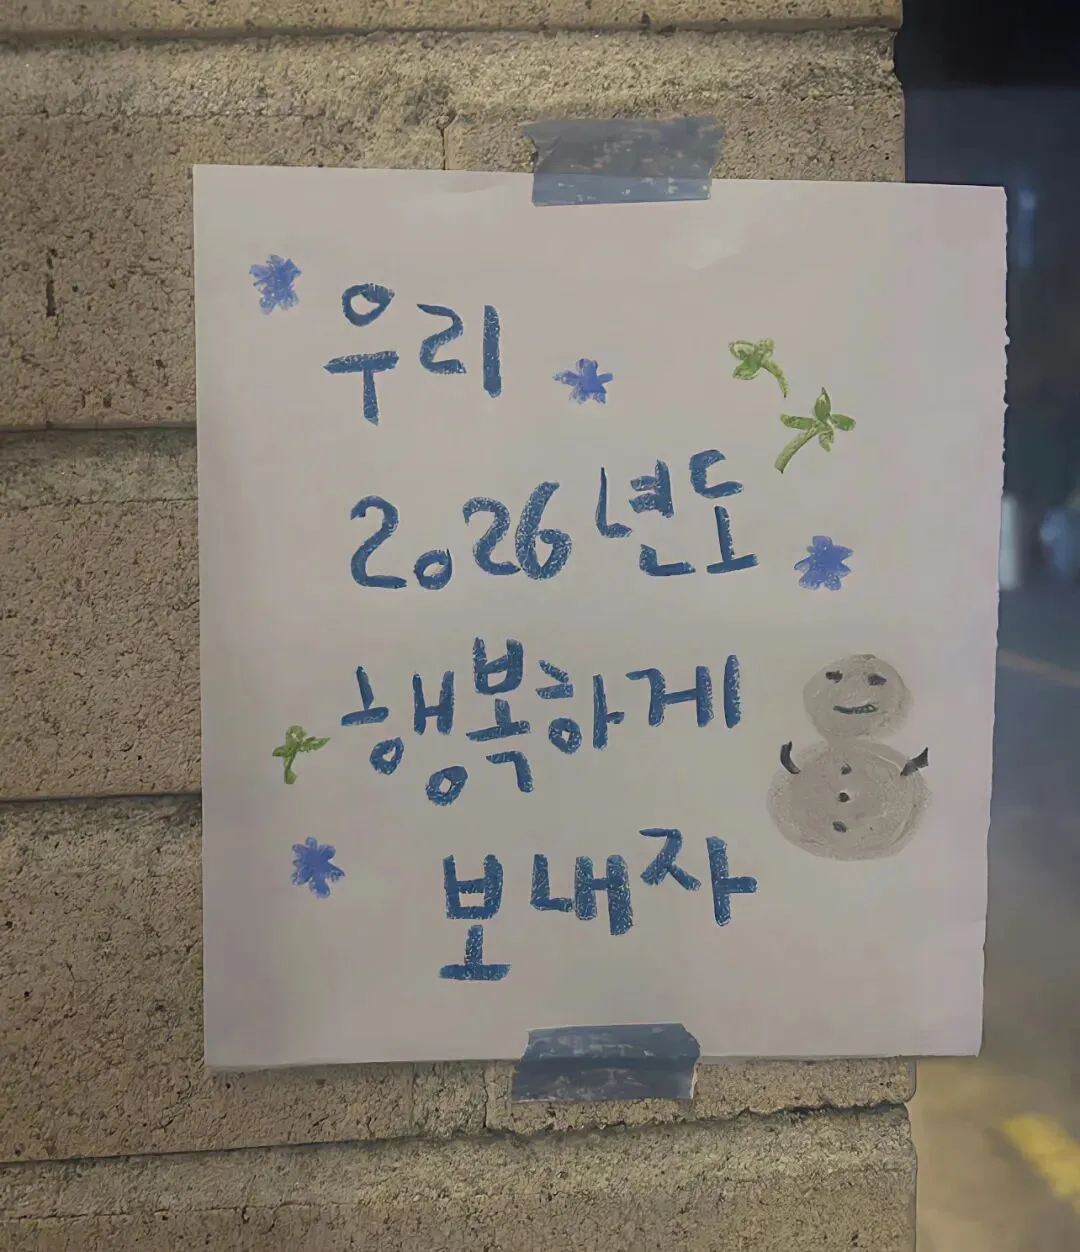 우리
2026년도
행복하게
보내자